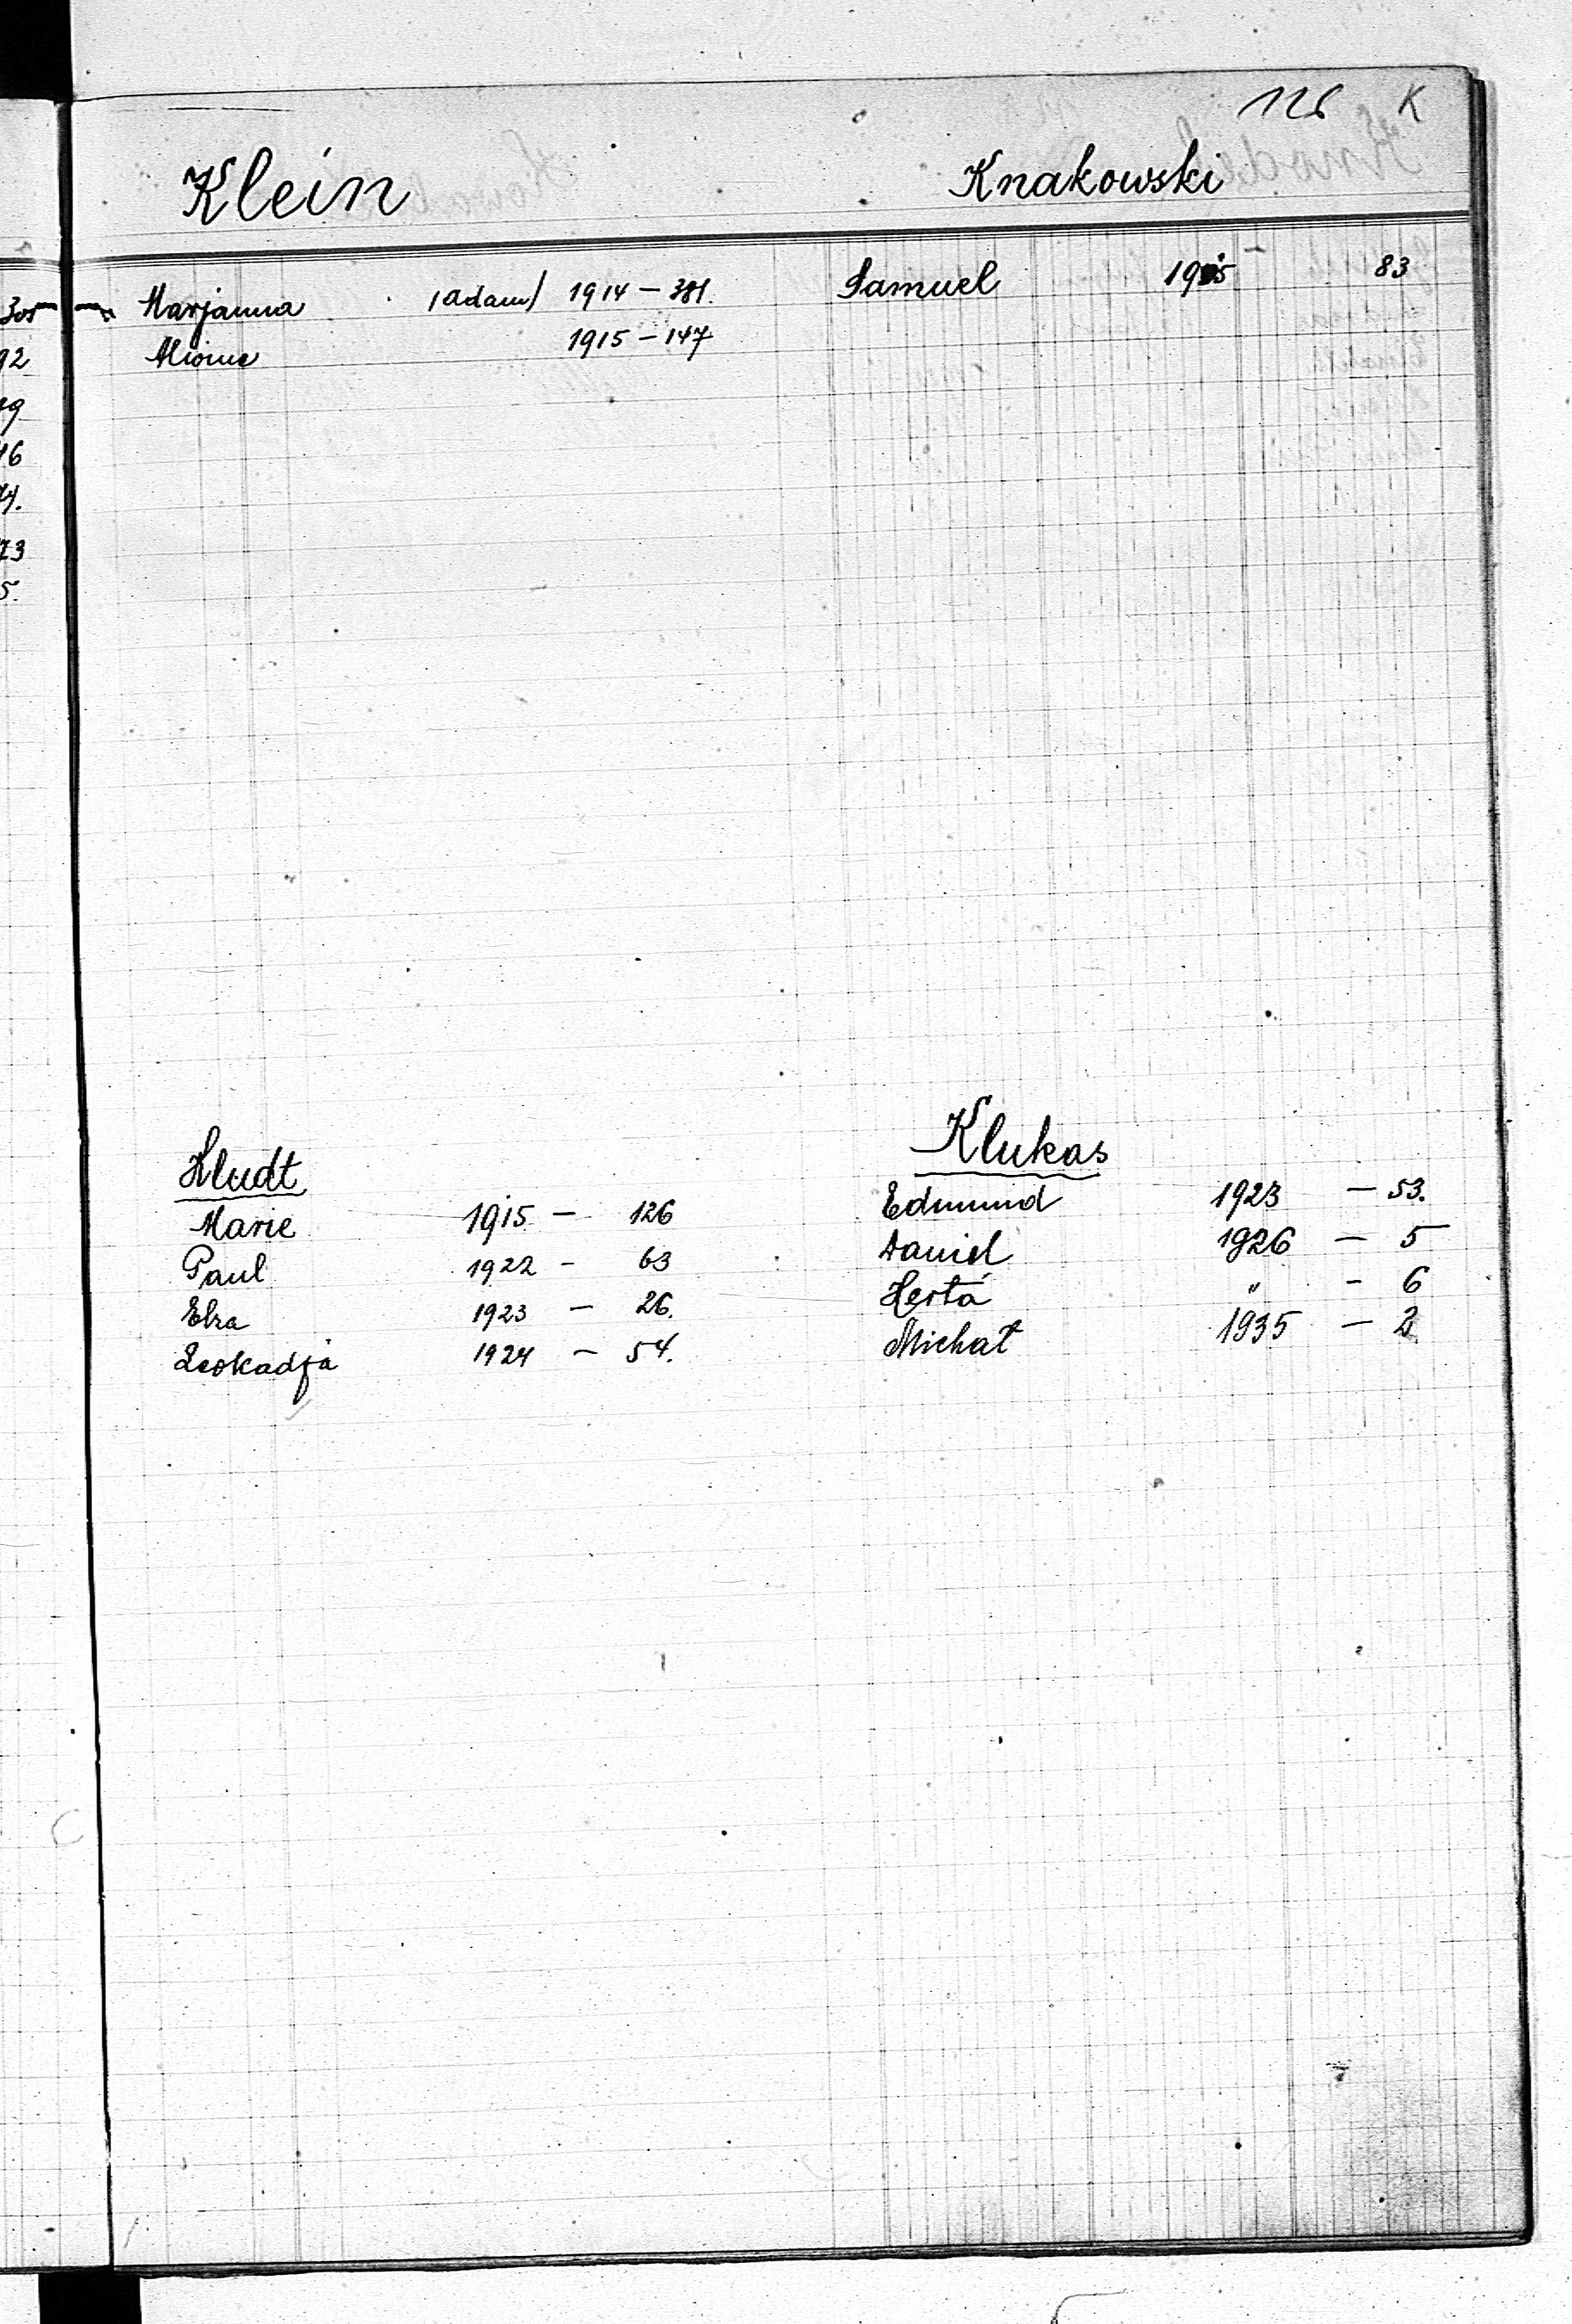 126 K
Klein
Marjanna (Adam) 1914 – 381.
1915 – 147
Knakowski
Samuel 1915 – 83
Kludt
Marie 1915 – 126
Paul 1922 – 63
Elza 1923 – 26.
Leokadja 1924 – 54.
Klukas
Edmund 1923 – 53.
Daniel 1926 – 5
Herta " – 6
Michał 1935 – 2
305
92
16
74.
73
5.